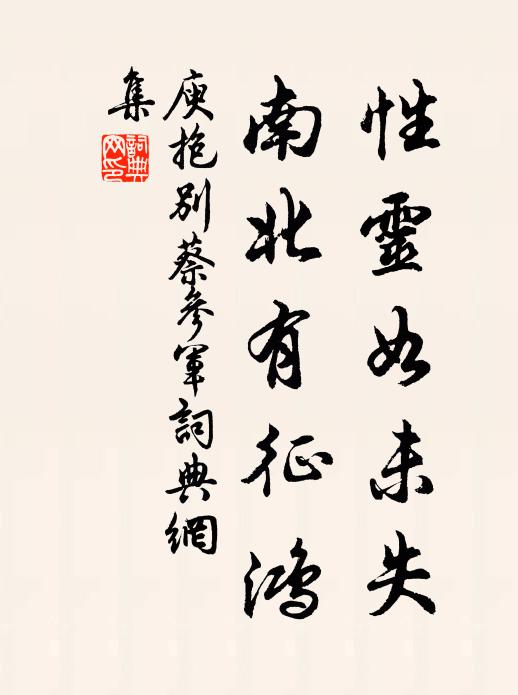 性靈如未失
南北有征鴻
庾抱別蔡參軍詞典網
集
詞典
网印